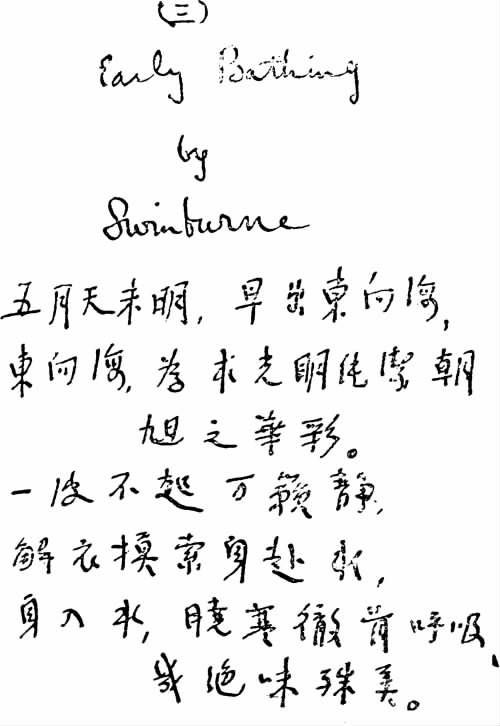 (三)
Early Bathing
by
Swinburne
五月天未明，早出東向海，
東向海，為求光明純潔朝
旭之華彩。
一波不起万籟靜，
解衣摸索身赴水，
身入水，曉寒徹骨呼吸、
幾絕味殊美。